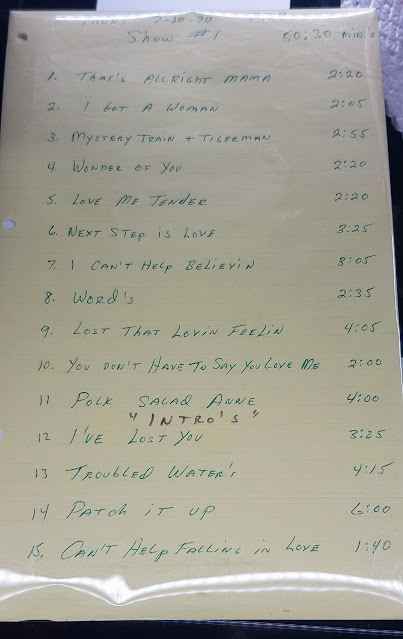 Show #1 50:30 min's
1. That's Allright Mama 2:20
2. I Got A Woman 2:05
3. Mystery Train + Tigerman 2:55
4. Wonder of You 2:20
5. Love Me Tender 2:20
6. Next Step is Love 3:25
7. I Can't Help Believin 3:05
8. Word's 2:35
9. Lost That Lovin Feelin 4:05
10. You Don't Have To Say You Love Me 2:00
11 Polk Salad Anne 4:00
"Intro's"
12 I've Lost You 3:25
13 Troubled Water's 4:15
14 Patch it up 6:00
15. Can't Help Falling in Love 1:40